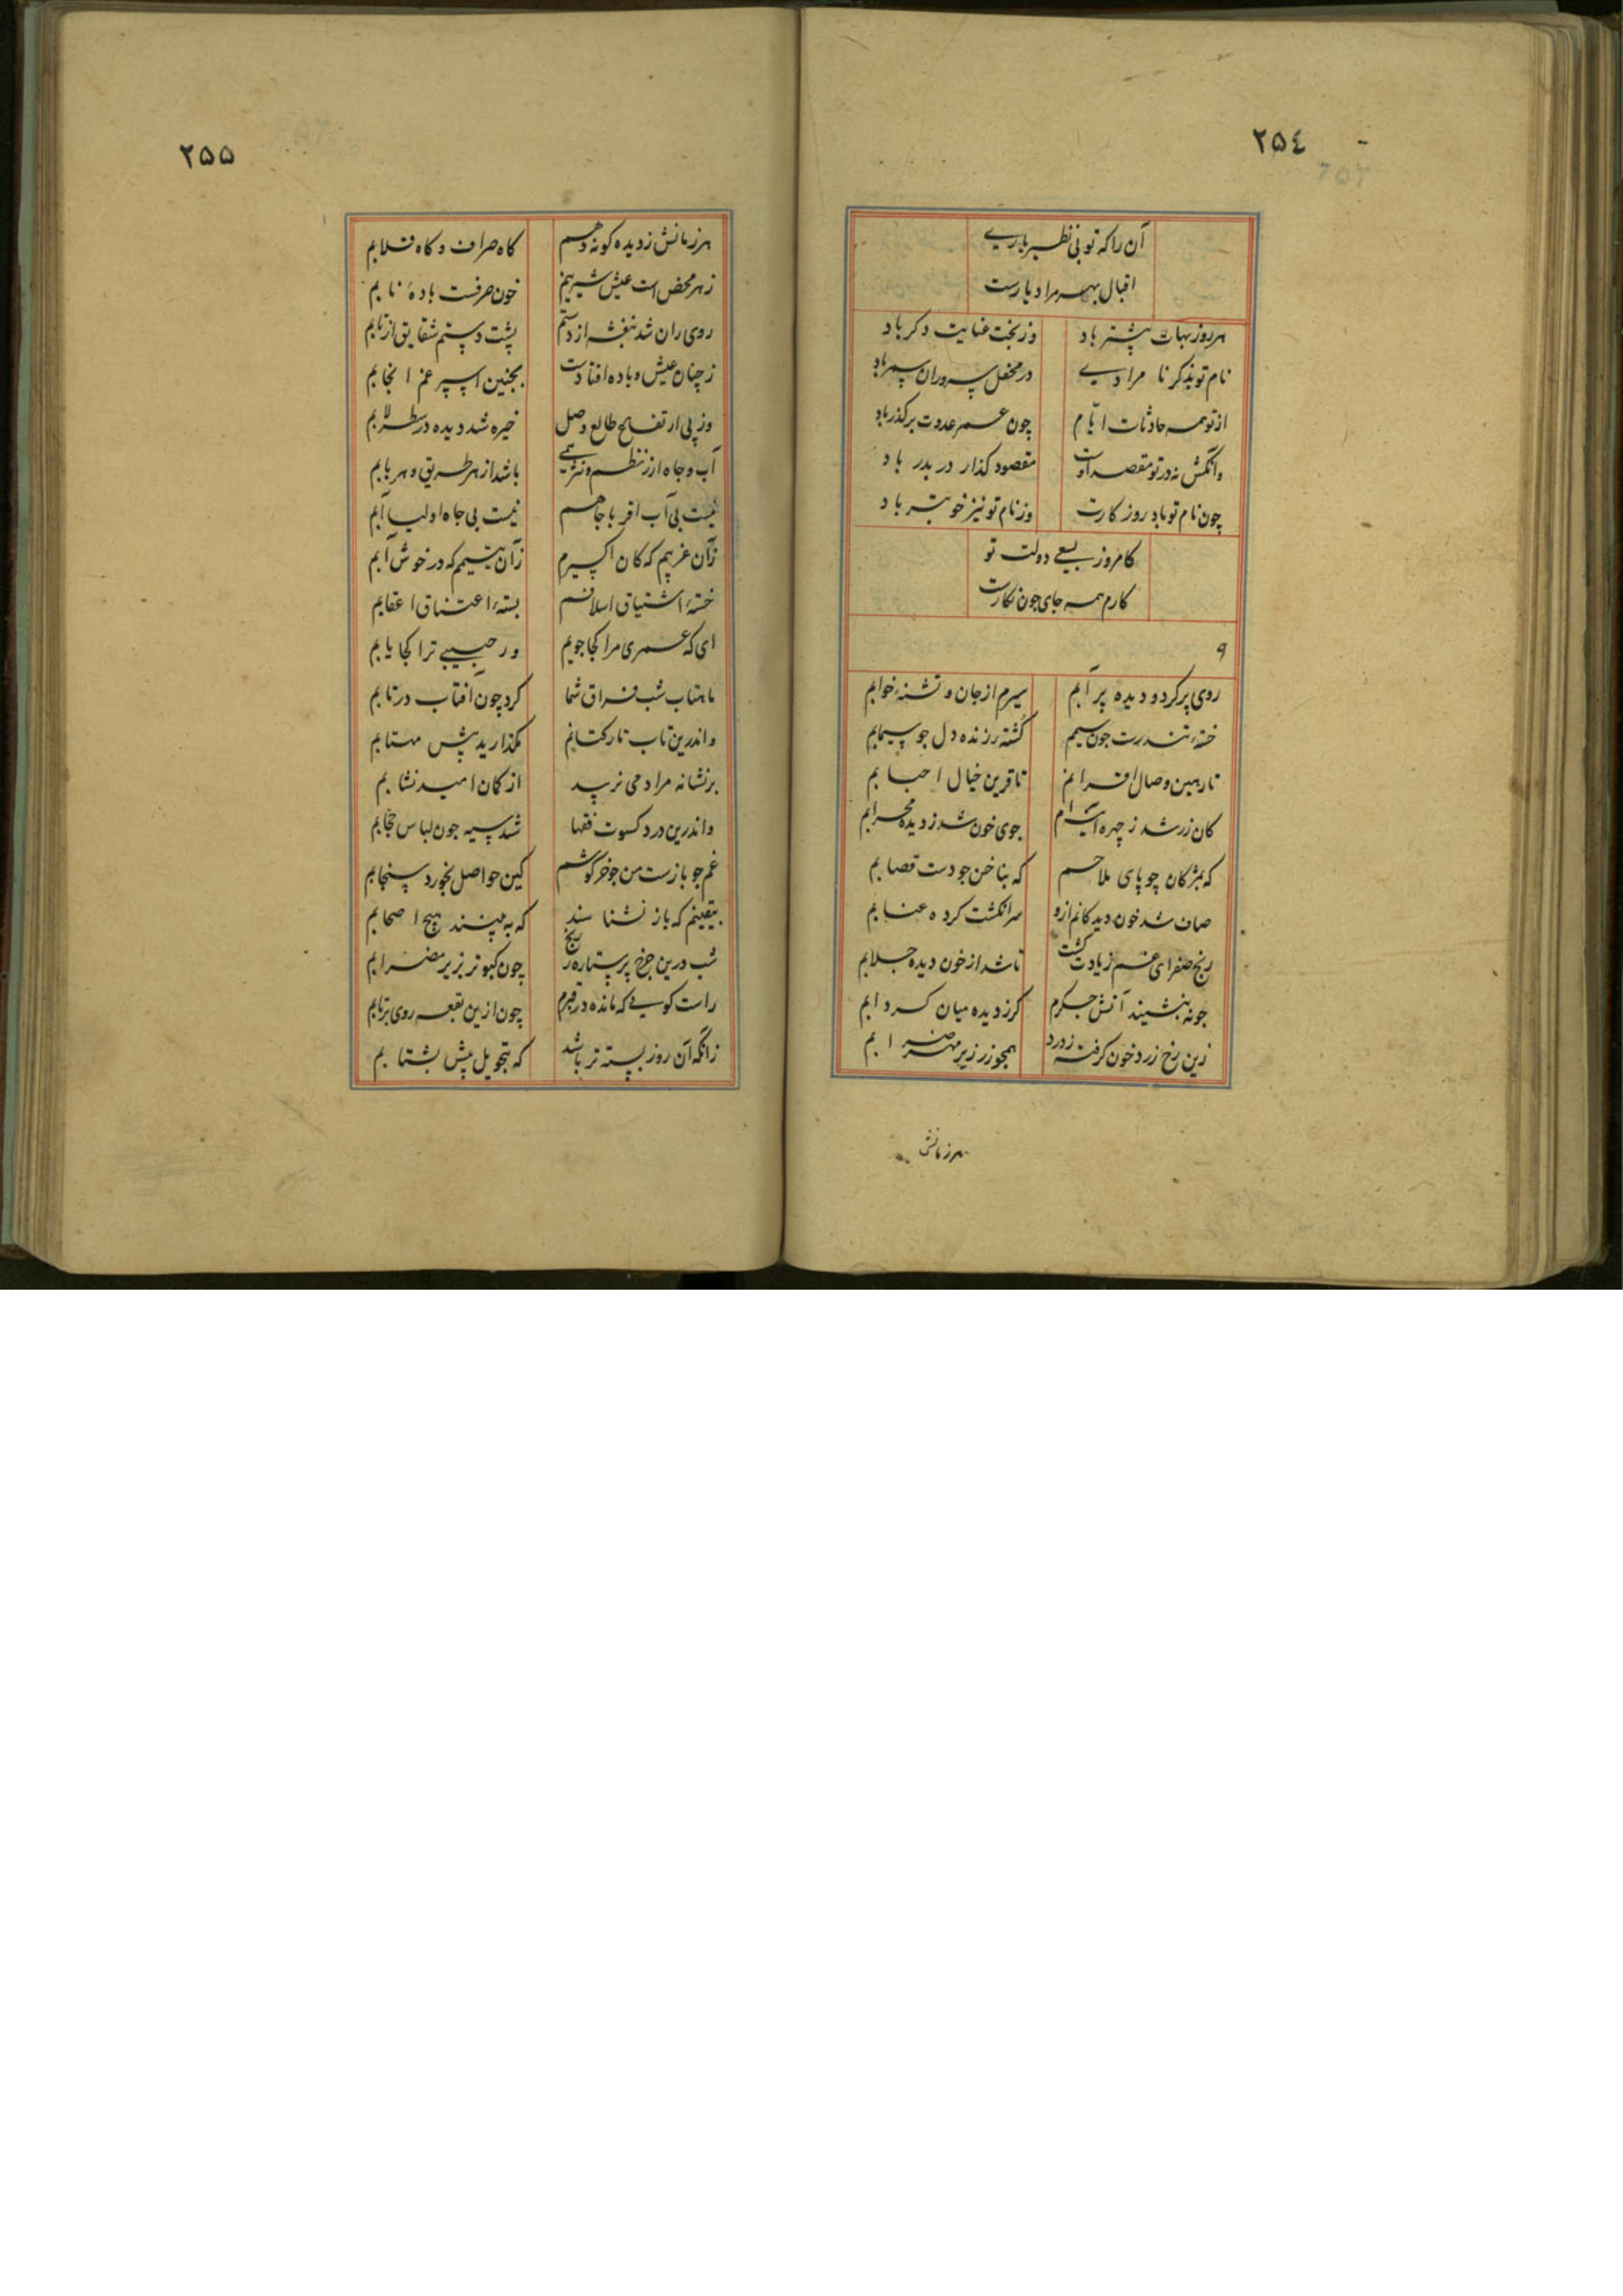 ٢٥٤
آن را که تو بی نظیر یاری
اقبال بهر مراد یارست
هر روز بهات پیشتر باد وز بخت عنایت دکر باد
نام تو بذکر نا مرادی در محفل سروران سمر باد
از تو همه حادثات ایام چون عمر عدوت بر کذر باد
وانکش نه در تو مقصد اوست مقصود کذار در بدر باد
چون نام تو باد روز کارت وز نام تو نیز خوبتر باد
کامروز بسعی دولت تو
کارم همه جای چون نکارست
و
روی پر کرد و دیده پر آبم سیرم از جان و تشنهٔ خوابم
خستهٔ تندرست چون سیمم کشته زنده دل جو سیمابم
تا رهین وصال اقرانم تا قرین خیال احبابم
کان زر شد ز چهره جوی خون شد ز دیده محرابم
که بمژکان چو پای ملاحم که بناخن جو دست قصابم
صاف شد خون دیدکانم ازو سرانکشت کرده عنابم
رنج صفرای غم زیادت کشت تا شد از خون دیده جلابم
جون بنشیند آتش جکرم کز دیده میان کردابم
زین رخ زرد خون کرفته ز درد همجو زر زیر مهر ضرابم
هر زمانش
٢٥٥
هر زمانش ز دیده کونه دهم کاه صراف و کاه قلابم
زهر محض است عیش شیرینم خون صرفست بادهٔ نابم
روی ران شد بنفشه از دستم پشت دستم شقایق از نابم
ز چنان عیش و باده افتادست بجنین اسپر غم انجابم
وز پی ارتفاع طالع وصل خیره شد دیده در سطرلابم
آب و جاه ار ز نظم و نثر همی باشد از هر طریق و هر بابم
نیست بی آب اقربا جاهم نیست بی جاه اولیا آبم
زان غریبم که کان اکسیرم زان یتیمم که در خوش آبم
خستهٔ اشتیاق اسلافم بستهٔ اعتناق اعقابم
ای که عمری مرا کجا جویم ور حبیبی ترا کجا یابم
ماهتاب شب فراق شما کرد چون آفتاب در تابم
واندرین تاب تار کتانم مکذارید پیش مهتابم
بر نشانه مراد می نرسد از کان امید نشابم
واندرین درد کسوت فقها شد سیه جون لباس حجابم
غم جو بازست من جو خرکوشم کین حواصل نخورد سنجابم
بیقینم که باز نشناسند که به بینند هیج اصحابم
شب درین چرخ پر ستاره رنج چون کبوتر بزیر مضرابم
راست کویی که مانده در قیرم چون ازین بقعه روی برتابم
زانکه آن روز بسته تر باشد که بتجویل پیش بشتابم